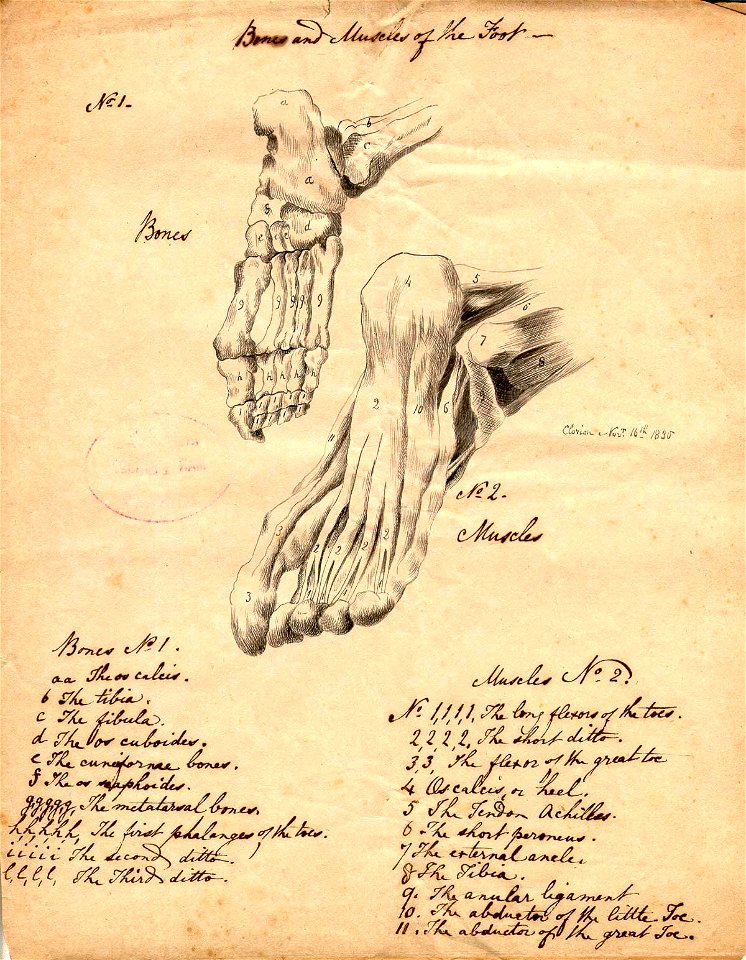 Bones and Muscles of the Foot —
No. 1-
a
b
c
a
g
d
e
c
e
g
g
g
g
g
h
h
h
h
h
Bones
4
5
6
7
8
9
2
10
6
11
3
2
2
2
2
3
Novr. 16th 1835
No. 2.
Muscles
Bones No. 1.
aa The os calcis.
b The tibia.
c The fibula.
d The os cuboides.
e The cuneiformae bones.
f The os scaphoides.
ggggg, The metatarsal bones.
h,h,h,h,h, The first phalanges of the toes.
iiiii The second ditto.
l,l,l,l, The Third ditto.
Muscles No. 2.
No. 1,1,1,1, The long flexors of the toes.
2,2,2,2, The short ditto.
3,3, The flexor of the great toe
4 Os calcis, or heel.
5 The Tendon Achilles.
6 The short peroneus.
7 The external ancle.
8 The Tibia.
9. The anular ligament
10. The abductor of the little Toe.
11. The abductor of the great Toe.